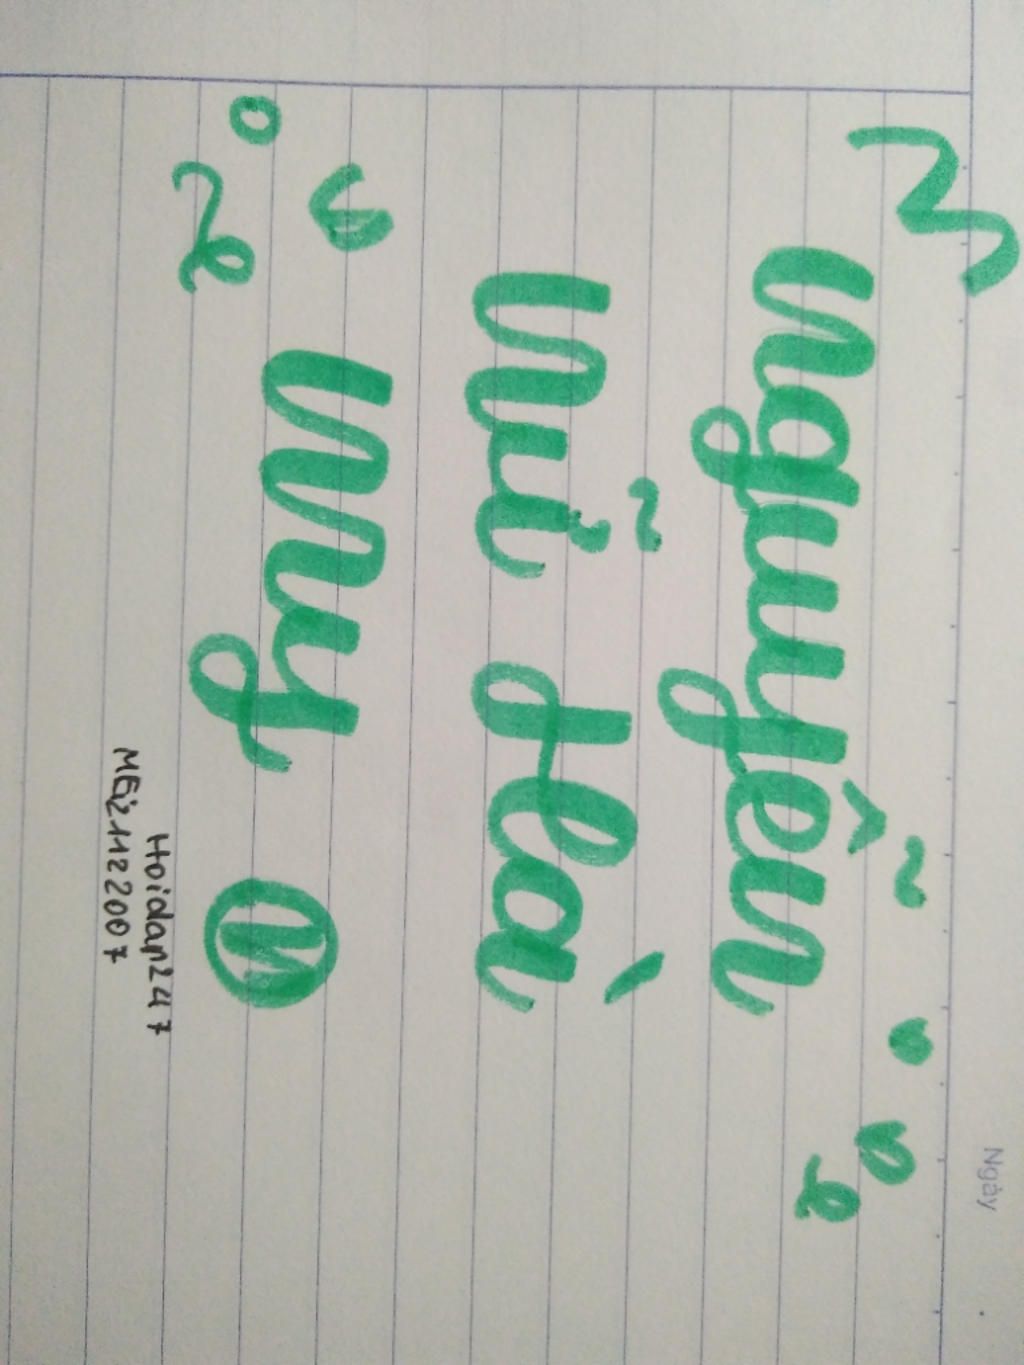 Ngày
Nguyễn
Nữ Hoà
My
Hoidap247
MEi21122007